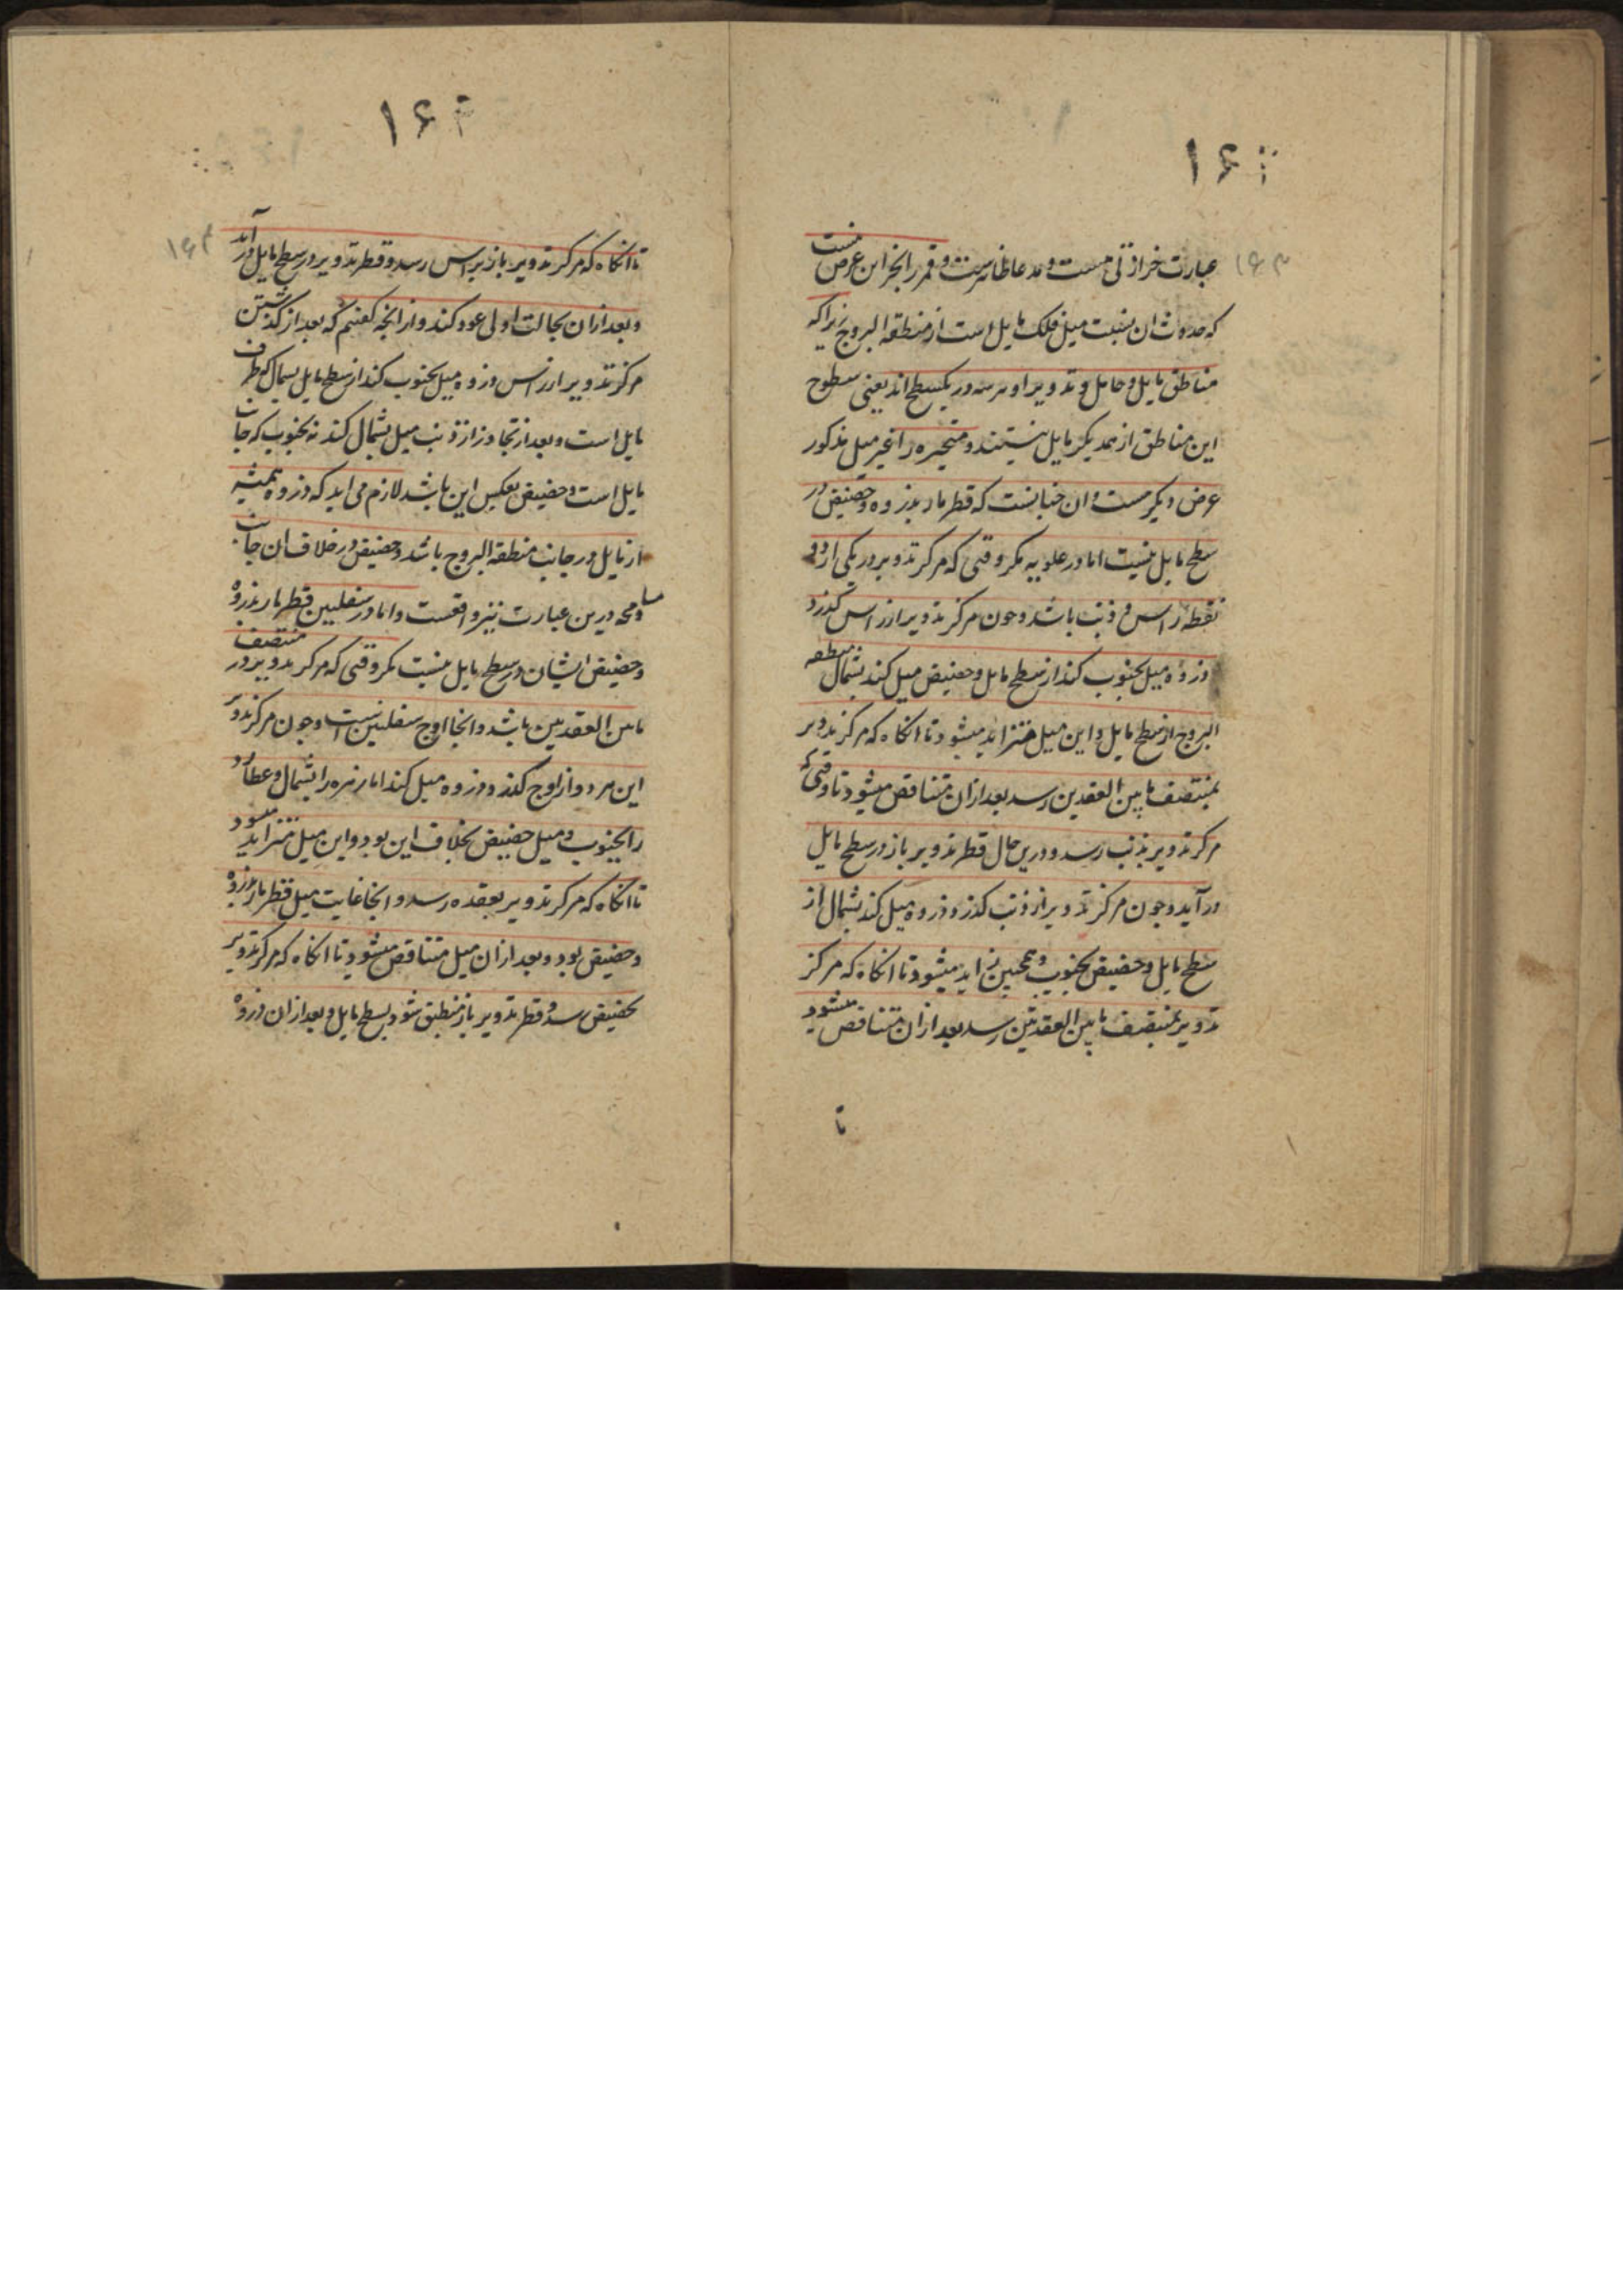 ۱۶۳
عبارت خرازتی هست و مدعا ظاهرست و قمر را بجز این عرض نیست
که حدوث ان بسبب میل فلک مایل است از منطقه البروج زیراکه
مناطق مایل و حامل و تدویر او هر سه در یکسطح اند یعنی سطوح
این مناطق از همدیکر مایل نیستند و متحیره را غیر میل مذکور
عرض دیکر هست و ان چنانست که قطر مار بذروه و حضیض در
سطح مایل نیست اما در علویه مکر وقتی که مرکز تدویر در یکی از دو
نقطه راس و ذنب باشد و چون مرکز تدویر از راس کذرد
ذروه میل بجنوب کند از سطح مایل و حضیض میل کند بشمال منطقه
البروج از سطح مایل و این میل متزاید میشود تا انکاه که مرکز تدویر
بمنتصف مابین العقدین رسد بعد ازان متناقص میشود تا وقتی که
مرکز تدویر بذنب رسد و درین حال قطر تدویر باز در سطح مایل
در آید و چون مرکز تدویر از ذنب کذرد ذروه میل کند بشمال از
سطح مایل و حضیض بجنوب و همچنین زاید میشود تا انکاه که مرکز
تدویر بمنتصف مابین العقدتین رسد بعد ازان متناقص میشود
تا
تا انکاه که مرکز تدویر باز براس رسد و قطر تدویر در سطح مایل در آید
و بعد ازان بحالت اولی عود کند و از انچه کفتیم که بعد از کذشتن
مرکز تدویر از راس ذروه میل بجنوب کند از سطح مایل بشمال که طرف
مایل است و بعد از تجاوز از ذنب میل بشمال کند نه بجنوب که جانب
مایل است و حضیض بعکس این باشد لازم می اید که ذروه همیشه
از مایل در جانب منطقه البروج باشد و حضیض در خلاف ان جانب
و مسامحه درین عبارت نیز واقعست و اما در سفلیین قطر مار بذروه
و حضیض ایشان در سطح مایل نیست مکر وقتی که مرکز تدویر در منتصف
مابین العقدتین باشد و انجا اوج سفلیین است و چون مرکز تدویر
این هر دو از اوج کذرد ذروه میل کند اما زهره را بشمال و عطارد
را بجنوب و میل حضیض بخلاف این بود و این میل متزاید میشود
تا انکاه که مرکز تدویر بعقده رسد و انجا غایت میل قطر مار بذروه
و حضیض بود و بعد ازان میل متناقص میشود تا انکاه که مرکز تدویر
بحضیض رسد و قطر تدویر باز منطبق شود بسطح مایل و بعد ازان ذروه